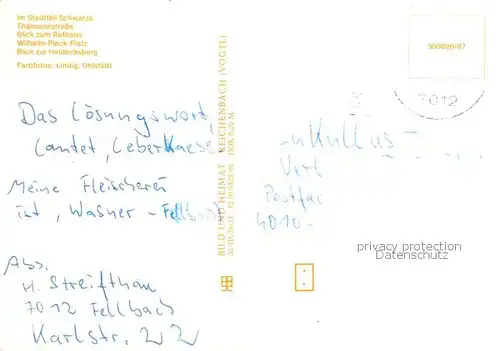 Im Stadtteil Schwarza
Thälmannstraße
Blick zum Rathaus
Wilhelm-Pieck-Platz
Blick zur Heidecksberg
Farbfotos: Lindig, Uhlstädt
Das Lösungswort,
lautet, Leberkaese
Meine Fleischerei
ist, Wasner - Fellbach
Abs.
H. Streifthau
7012 Fellbach
Karlstr. 22
BILD UND HEIMAT REICHENBACH (VOGTL)
300886/87
7012
Verl
Postfac
4010-
privacy protection
Datenschutz